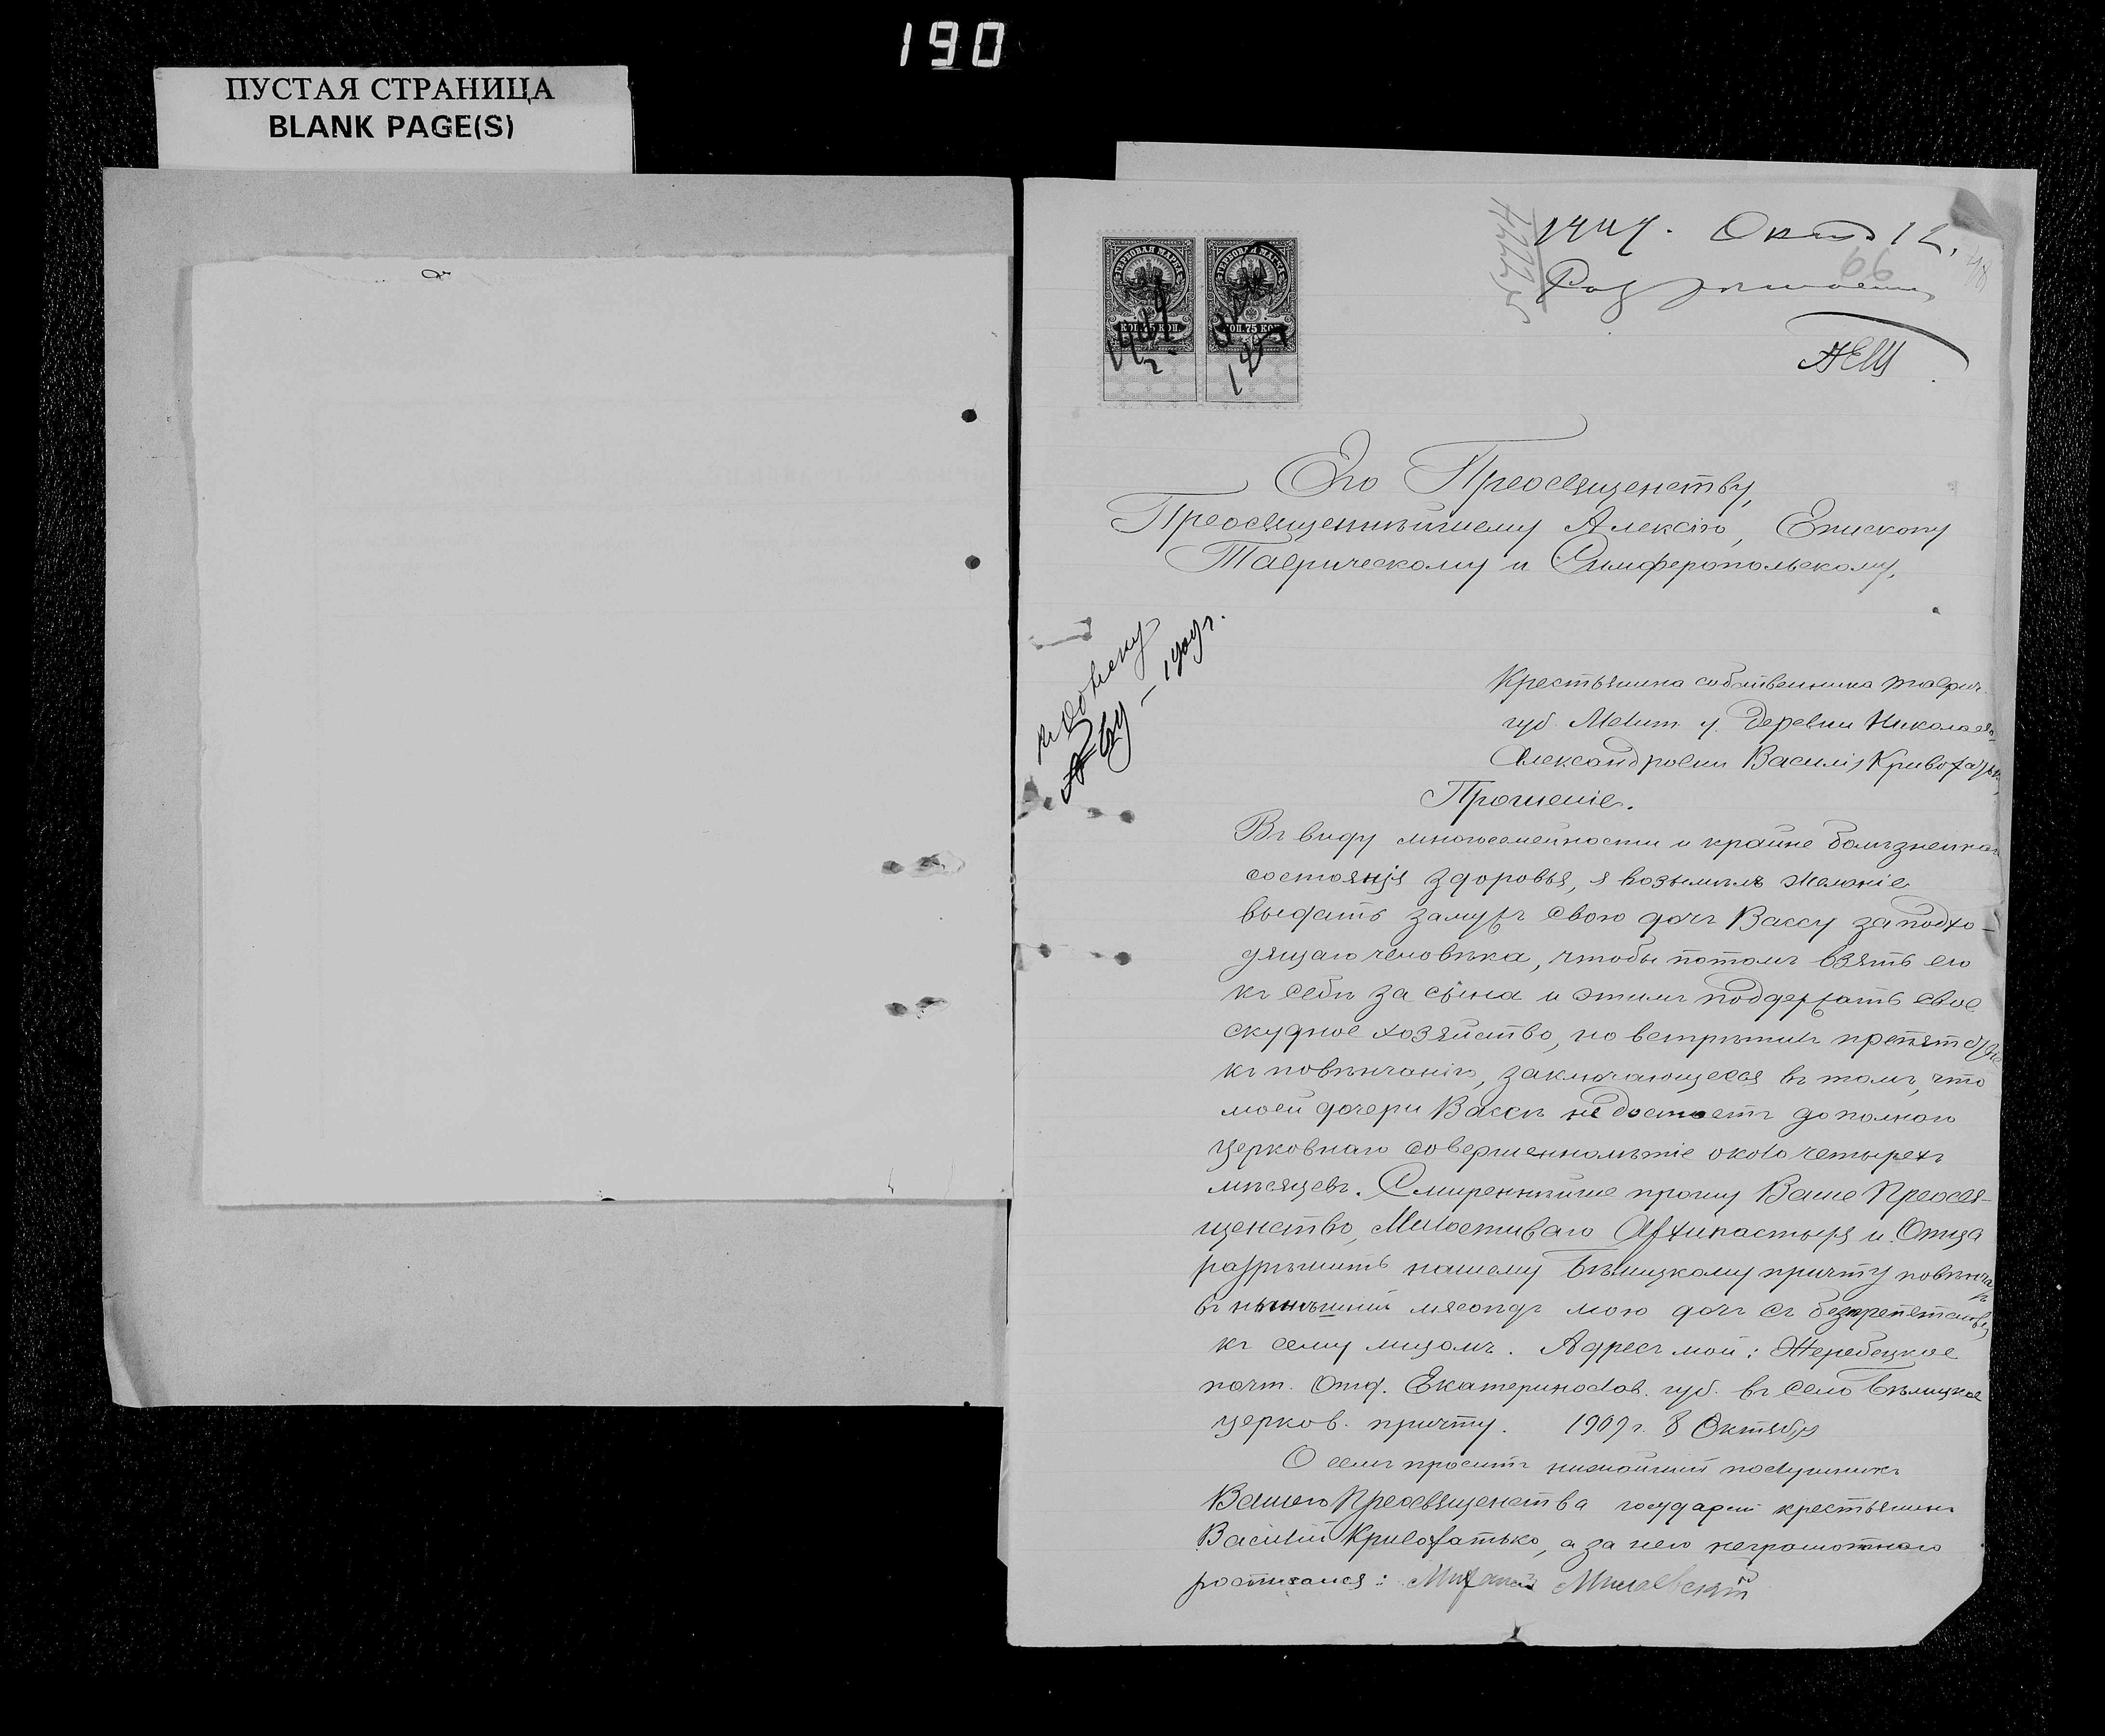 190
ПУСТАЯ СТРАНИЦА
BLANK PAGE(S)
Окт 12.
66
ГЕРБОВАЯ МАРКА
КОП. 75 КОП.
ГЕРБОВАЯ МАРКА
КОП. 75 КОП.
Его Преосвященству,
Преосвященнѣйшему Алексію, Епископу
Таврическому и Симферопольскому,
1909 г.
Крестьянина собственника Таврич.
губ. Мелит. у. деревни Николаево-
Александровки Василія Кривохатьки,
Прошеніе.
Въ виду многосемейности и крайне болѣзненнаго
состоянія здоровья, я возымѣлъ желаніе
выдать замужъ свою дочь Вассу за подхо-
дящаго человѣка, чтобы потомъ взять его
къ себѣ за сына и этимъ поддержать свое
скудное хозяйство, но встрѣтилъ препятствіе
къ повѣнчанію, заключающееся въ томъ, что
моей дочери Вассѣ не достаетъ до полнаго
церковнаго совершеннолѣтіе около четырехъ
мѣсяцевъ. Смиреннѣйше прошу Ваше Преосвя-
щенство, Милостиваго Архипастыря и Отца
разрѣшить нашему Бѣлицкому причту повѣнчать
въ нынѣшній мясоѣдъ мою дочь съ безпрепятствен
къ сему лицомъ. Адресъ мой: Жеребецкое
почт. отд. Екатериносла. губ. въ село Бѣлицкое
церков. причту. 1909 г. 8 Октября
О семъ проситъ нижайшій послушникъ
Вашего Преосвященства государств крестьянинъ
Василій Кривохатько, а за него неграмотнаго
росписался: Михаилъ